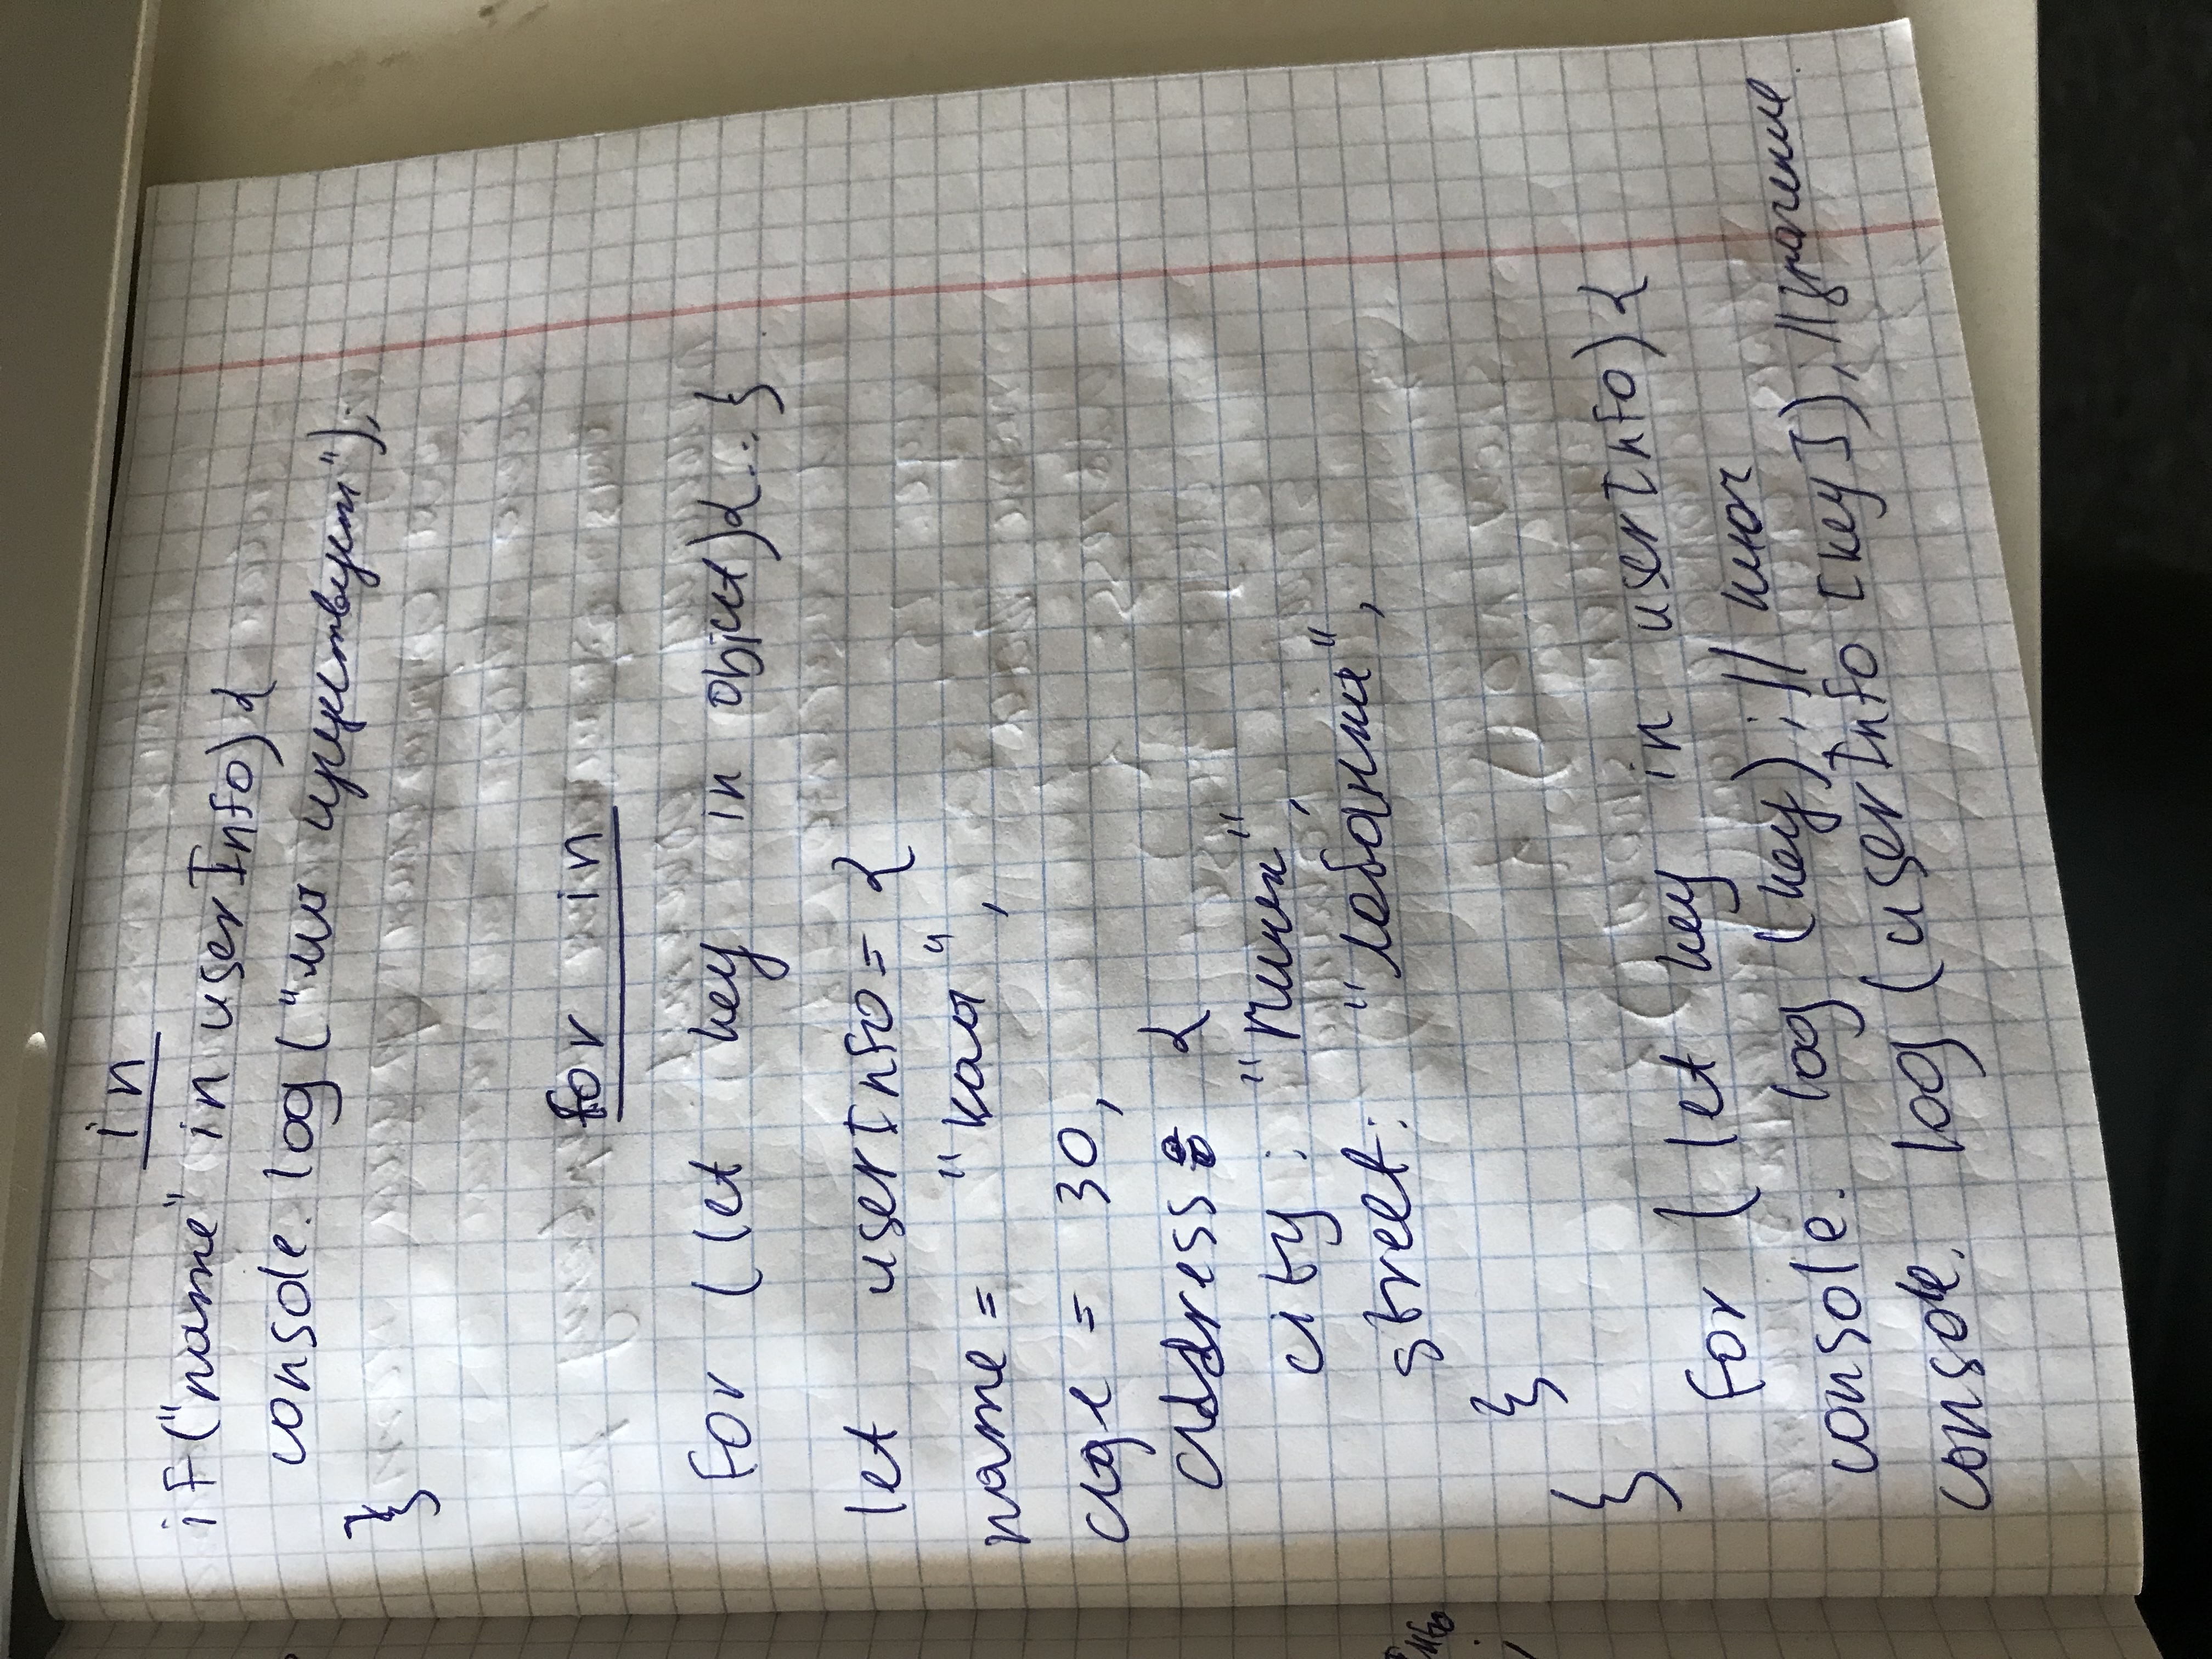 in
if("name" in userInfo){
console. log ("имя существует");
}
for in
for (let key in object){...}
let userInfo= {
name= "кая",
age = 30,
address: {
city: "Минск",
street: "лобанка",
}
}
for (let key in userInfo){
console. log (key); // ключ
console. log (userInfo [key]); // значение